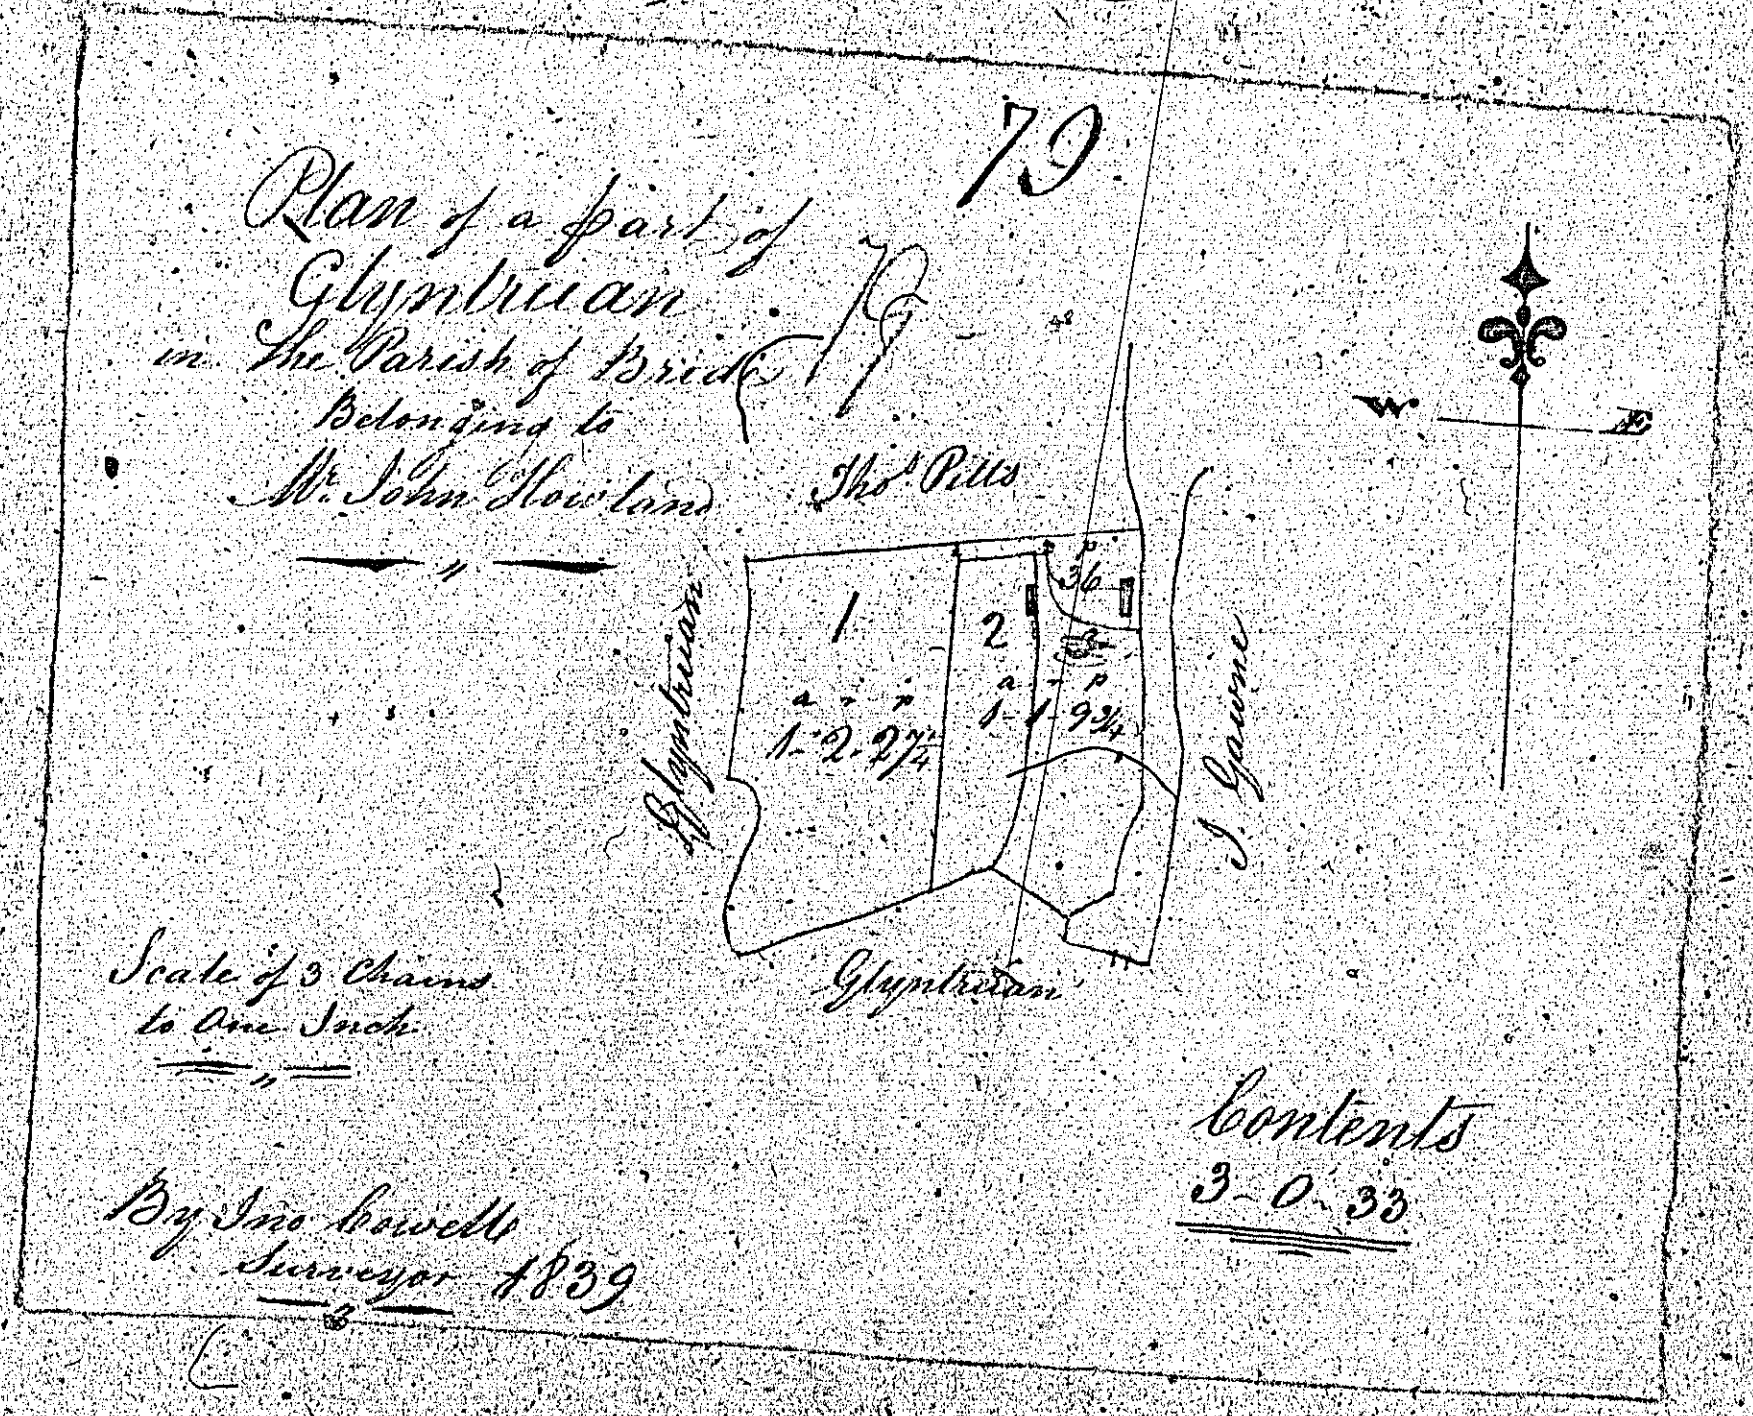 79
Plan of a part of
Glyntruan
in the Parish of Bride
Belonging to
Mr. John Howland
79
Thos Pitts
W
E
Glyntruan
1
a r p
1-2-27 1/4
2
a r p
1-1-9 3/4
P P
36
J. Gawne
Glyntruan
Scale of 3 Chains
to One Inch
Contents
3-0-33
By Jno Cowelle
Surveyor 1839